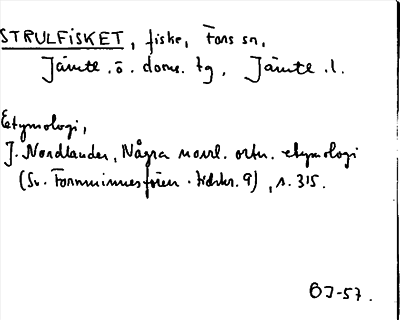 STRULFISKET, fiske, Fors sn,
Jämtl. ö. doms. tg, Jämtl. l.
Etymologi,
J. Nordlander, Några norrl. ortn. etymologi
(Sv. Fornminnesfören. tidskr. 9), s. 315.
BJ-57.